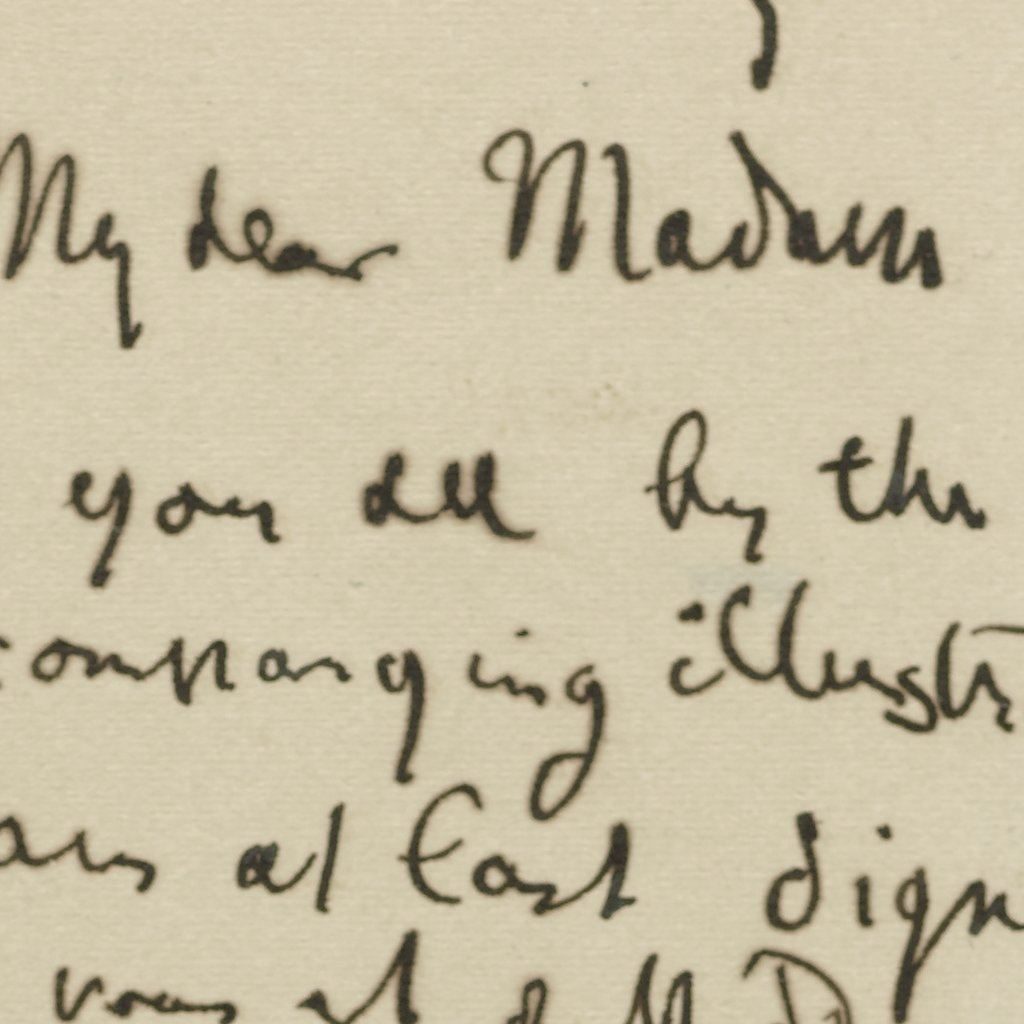 My dear Madam
you all by the
companying illustr
at last dign